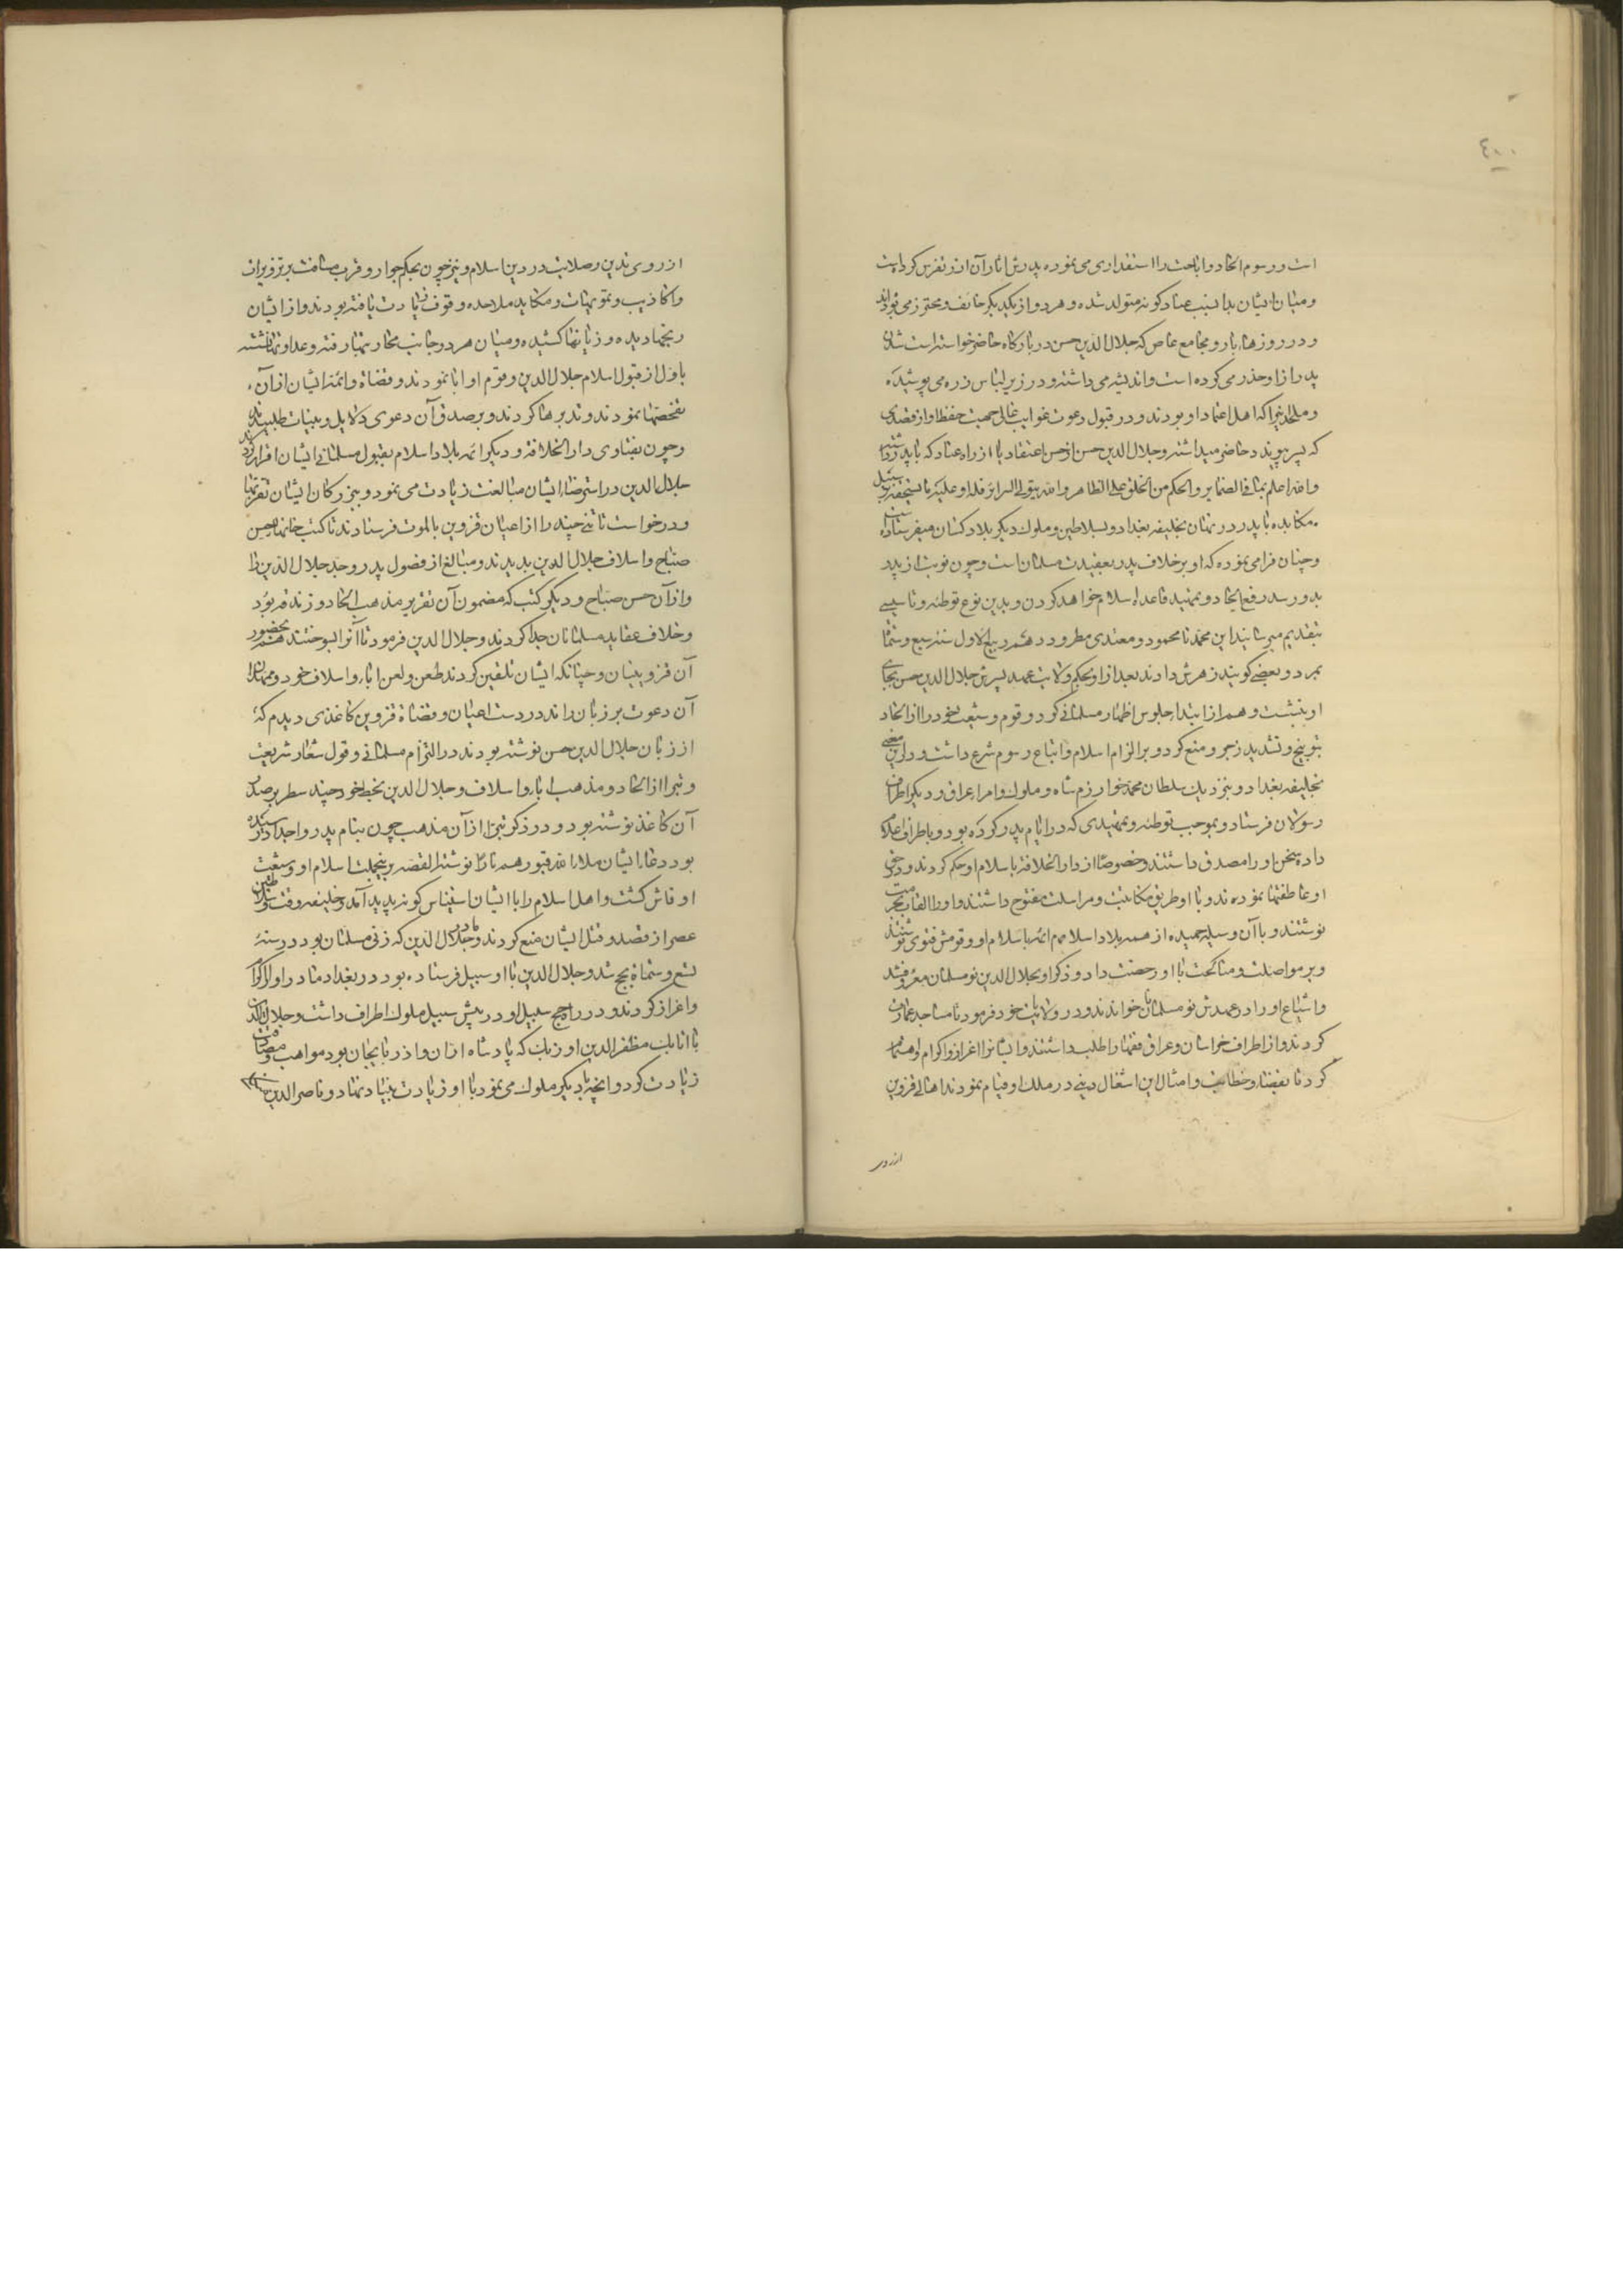 ٤٠٠
است و رسوم الحاد و اباحت را استقذاری می نموده پدرش اثار آن ازو تفرس کرد است
و میان ایشان بدا نسبب عناد گونه متولد شده و هر دو از یکدیگر خائف و محترز می بوده اند
و در روزهاء بار و مجامع خاص که جلال الدین حسن در بارگاه حاضر خواسته است شدن
پدر ازاو حذر می کرده است و اندیشه می داشته و در زیر لباس زره می پوشیده
و ملحدانیرا که اهل اعتماد او بودند و در قبول دعوت غوایت غالی جهت حفظ او از قصدی
که پسر پیوندد حاضر میداشته و جلال الدین حسن از حسن اعتقاد یا از راه عناد که با پدر داشته
والله اعلم بما فی الضمایر والحکم من الخلق علی الظاهر والله یتولی السرائر فله او علیه ما یستحقه بر سبیل
مکایده با پدر در نهان بخلیفه بغداد و بسلاطین و ملوک دیگر بلاد کسان میفرستاده
و چنان فرا می نموده که او بر خلاف پدر بعقیدت مسلمان است و چون نوبت از پدر
بدو رسد رفع الحاد و تمهید قاعده اسلام خواهد کردن و بدین نوع توطئه و تاسیسی
بتقدیم میرسانید این محمد نا محمود و معتدی مطرود دهم ربیع الاول سنه سبع و ستمائه
بمرد و بعضی گویند زهرش دادند بعد ازاو بحکم ولایت عهد پسرش جلال الدین حسن بجای
او بنشست و هم از ابتداء جلوس اظهار مسلمانی کرد و قوم و شیعت خود را از الحاد
بتوبیخ و تشدید زجر و منع کرد و بر الزام اسلام و اتباع رسوم شرع داشت و درین معنی
بخلیفه بغداد و بنزدیک سلطان محمد خوارزم شاه و ملوک و امراء عراق و دیگر اطراف
رسولان فرستاد و بموجب توطئه و تمهیدی که در ایام پدر کرده بود و باطراف اعلام
داده سخن او را مصدق داشتند و خصوصا از دار الخلافه باسلام او حکم کردند و در حق
او عاطفتها نموده ند و با او طریق مکاتبت و مراسلت مفتوح داشتند و او را القاب بحرمت
نوشتند و با آن وسیله حمیده از همه بلاد اسلام هم ائمه باسلام او و قومش فتوی نوشتند
و بر مواصلت و مناکحت با او رخصت داد و ذکر او بجلال الدین نو مسلمان معروف شد
و اشیاع او را در عهدش نو مسلمانان خواندند و در ولایت خود فرمود تا مساجد عمارت
کردند و از اطراف خراسان و عراق فقها را طلب داشتند و ایشانرا اعزاز و اکرام و اهتمام
کرد تا بقضاء و خطابت و امثال این اشغال دینی در ملک او قیام نمودند اهالی قزوین
از روی
از روی تدین و صلابت در دین اسلام و نیز چون بحکم جوار و قرب مسافت بر تزویرات
و اکاذیب و تمویهات و مکاید ملاحده وقوف زیادت یافته بودند و از ایشان
رنجها دیده و زیانها کشیده و میان هر دو جانب محاربتها رفته و عداوتها گشته
باول از قبول اسلام جلال الدین و قوم او ابا نمودند و قضاة و ائمه ایشان از آن
تفحصها نمودند و تدبرها کردند و بر صدق آن دعوی دلایل و بینات طلبیدند
و چون بفتاوی دار الخلافه و دیگر ائمه بلاد اسلام بقبول مسلمانی ایشان اقرار کردند
جلال الدین در استرضاء ایشان مبالغت زیادت می نمود و بنزرگان ایشان تقربها
و درخواست تا تنی چند را از اعیان قزوین بالموت فرستادند تا کتب خانهاء حسن
صباح و اسلاف جلال الدین بدیدند و مبالغ از فضول پدر و جد جلال الدین را
و از آن حسن صباح و دیگر کتب که مضمون آن تقریر مذهب الحاد و زندقه بود
و خلاف عقاید مسلمانان جدا کردند و جلال الدین فرمود تا آنرا بسوختند هم بحضور
آن قزوینیان و چنانکه ایشان تلقین کردند طعن و لعن اباء و اسلاف خود و ممهدان
آن دعوت بر زبان راند در دست اعیان و قضاة قزوین کاغذی دیدم که
از زبان جلال الدین حسن نوشته بودند در التزام مسلمانی و قول شعار شریعت
و تبرا از الحاد و مذهب اباء و اسلاف و جلال الدین بخط خود چند سطر بر صدر
آن کاغذ نوشته بود و در ذکر تبرا از آن مذهب چون بنام پدر و اجداد رسیده
بود دعاء ایشان ملاء الله قبورهم نارا نوشته القصه برینجملت اسلام او و شیعت
او فاش گشت و اهل اسلام را با ایشان استیناس گونه پدید آمد و خلیفه وقت و سلاطین
عصر از قصد و قتل ایشان منع کردند و مادر جلال الدین که زنی مسلمان بود در سنه
تسع و ستمائة بحج شد و جلال الدین با او سبیل فرستاده بود در بغداد مادر او را اکرام
و اعزاز کردند و در راه حج سبیل او در پیش سبیل ملوک اطراف داشت و جلال الدین
با اتابک مظفر الدین اوزبک که پادشاه اران و اذربایجان بود مواهب و مصافات
زیادت کرد و آنچه با دیگر ملوک می نمود با او زیادت بنیاد نهاد و ناصر الدین منکلی